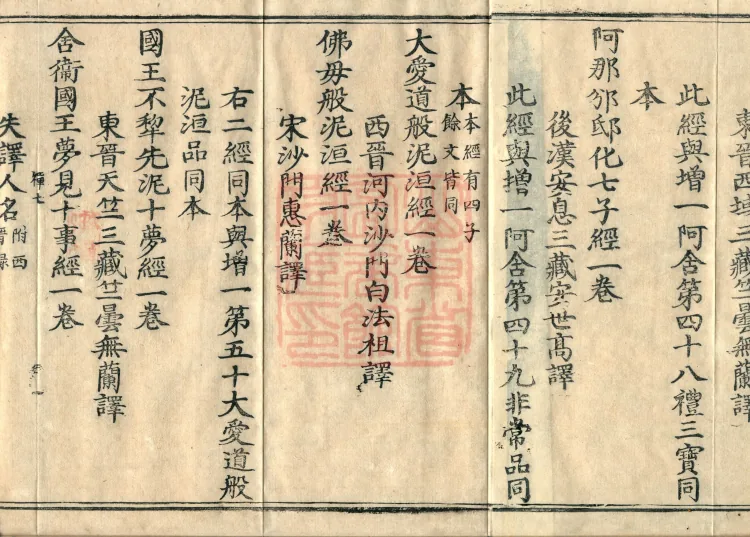 東晉西域三藏竺曇無蘭譯
此經與增一阿舍第四十八禮三寶同
本
阿那邠邸化七子經一卷
後漢安息三藏安世高譯
此經與增一阿舍第四十九非常品同
本本經有四子
餘文皆同
大愛道般泥洹經一卷
西晉河內沙門白法祖譯
佛母般泥洹經一卷
宋沙門惠蘭譯
右二經同本與增一第五十大愛道般
泥洹品同本
國王不犁先泥十夢經一卷
東晉天竺三藏竺曇無蘭譯
舍衛國王夢見十事經一卷
失譯人名附西
晉錄